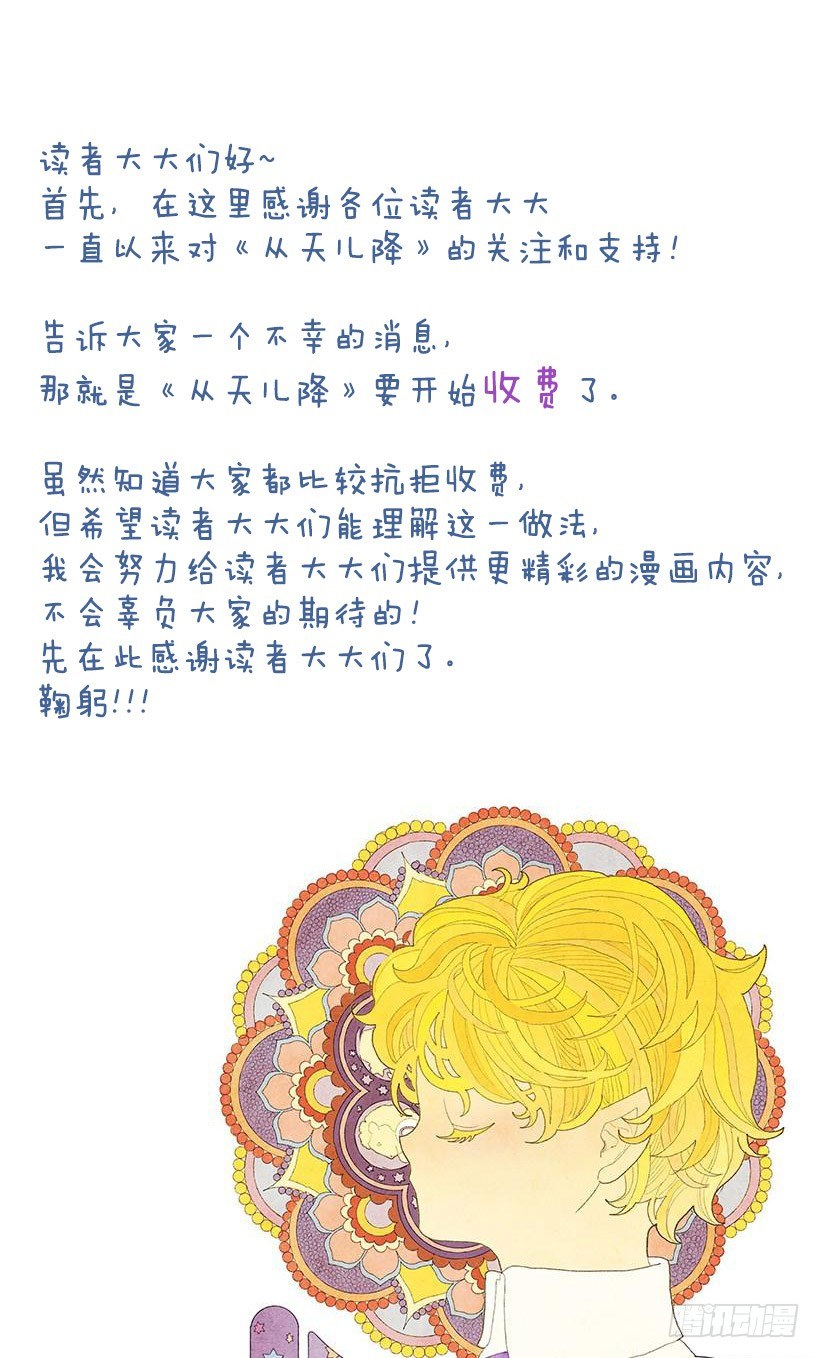 读者大大们好~
首先, 在这里感谢各位读者大大
一直以来对《从天儿降》的关注和支持!
告诉大家一个不幸的消息,
那就是《从天儿降》要开始收费了。
虽然知道大家都比较抗拒收费,
但希望读者大大们能理解这一做法,
我会努力给读者大大们提供更精彩的漫画内容,
不会辜负大家的期待的!
先在此感谢读者大大们了。
鞠躬!!!
腾讯动漫